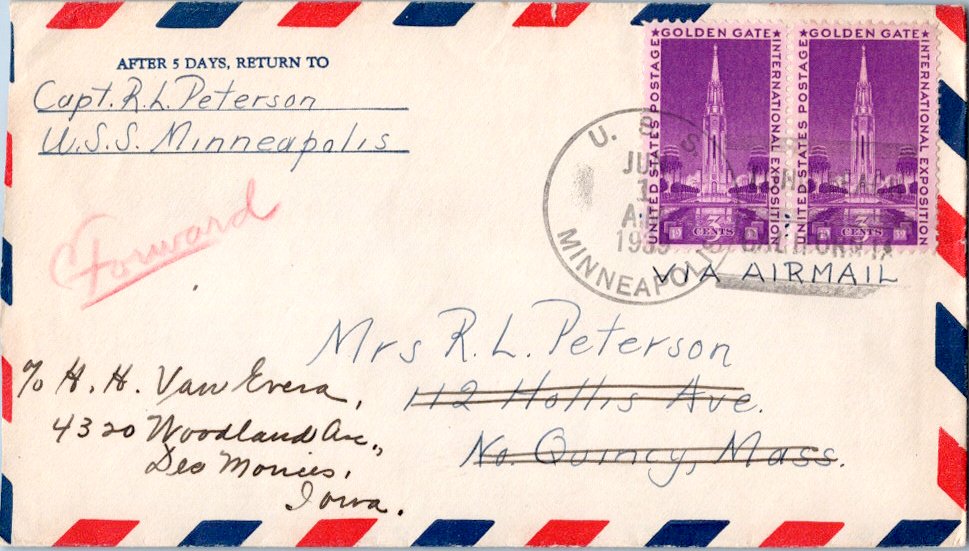 AFTER 5 DAYS, RETURN TO
Capt. R.L. Peterson
U.S.S. Minneapolis
Forward
UNITED STATES POSTAGE
GOLDEN GATE
INTERNATIONAL EXPOSITION
3 CENTS
19 39
UNITED STATES POSTAGE
GOLDEN GATE
INTERNATIONAL EXPOSITION
3 CENTS
19 39
U. S. S.
MINNEAPOLIS
1
1939
LONG BEACH
CALIFORNIA
VIA AIRMAIL
Mrs R.L. Peterson
112 Hollis Ave.
No. Quincy, Mass.
℅ H. H. Van Evera,
4320 Woodland Ave.,
Des Moines,
Iowa.